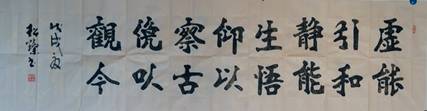 虚能
引和
静能
生悟
仰以
察古
俛以
觀今
戊戌夏